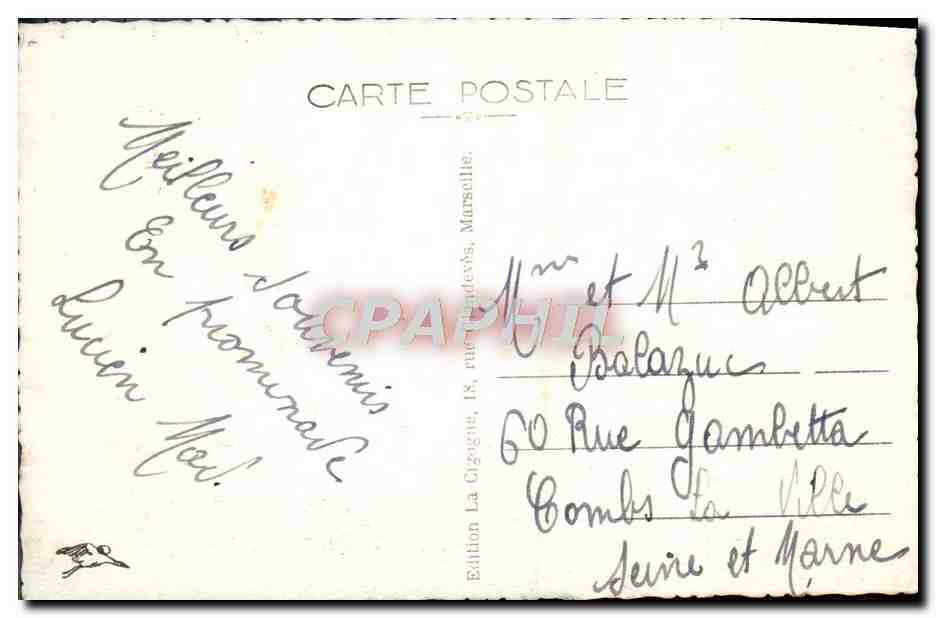 CARTE POSTALE
Meilleurs Souvenirs
En promenade
Lucien
Edition La Cigogne, 18, rue Glandevès, Marseille.
CPAPHIL
Mme et Mr Albert
Balazuc
60 Rue Gambetta
Combs La Ville
Seine et Marne